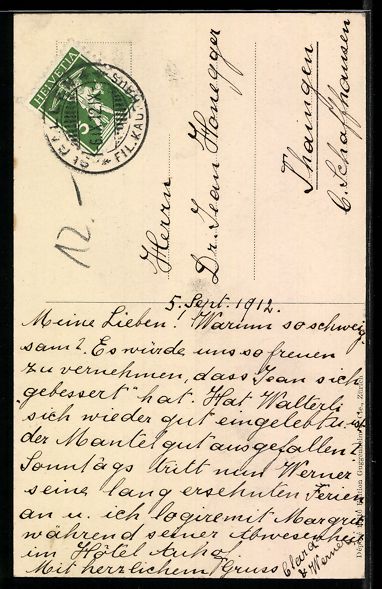 HELVETIA
ST. GALLEN
FIL. KAUFHAUS
12.-
Herrn
Dr. Jean Honegger
Thaingen
C. Schaffhausen
5. Sept. 1912.
Meine Lieben! Warum so schweig-
sam? Es würde uns so freuen
zu vernehmen, dass Jean sich
"gebessert" hat. Hat Walterli
sich wieder gut eingelebt u. ist
der Mantel gut ausgefallen?
Sonntags tritt nun Werner
seine lang ersehnten Ferien
an u. ich logire mit Margrit
während seiner Abwesenheit
im Hôtel
Mit herzlichem Gruss
Clara
& Werner
Guggenheim & Co., Zürich